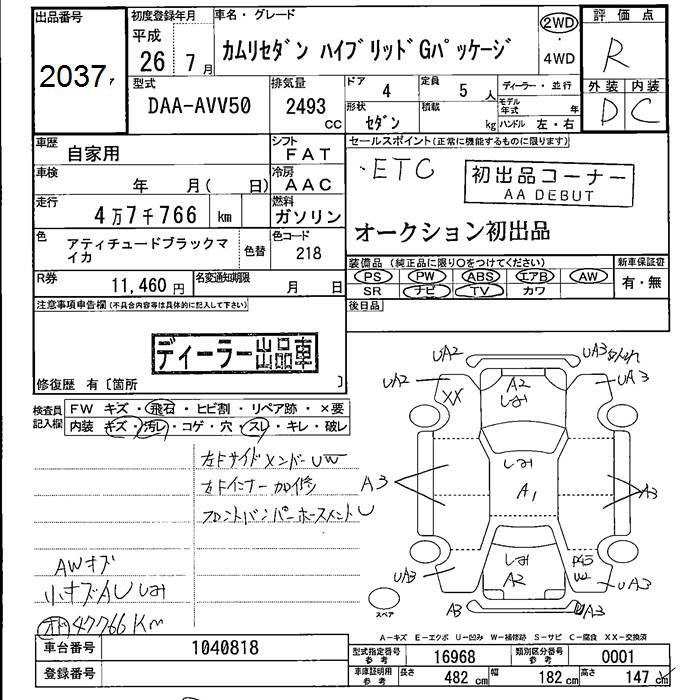 出品番号
2037
初度登録年月
平成
26 7月
車名・グレード
カムリセダン ハイブリッドGパッケージ
2WD
4WD
評価点
R
外装 内装
D C
型式
DAA-AVV50
排気量
2493
CC
ドア 4
定員 5 人
形状 セダン
積載 kg
ディーラー・並行
モデル年式 年
ハンドル 左・右
車歴
自家用
シフト
FAT
車検
年 月( 日)
冷房
AAC
走行
4万7千766 km
燃料
ガソリン
色
アティチュードブラックマイカ
色替
色コード
218
R券
11,460円
名変通知期限
月 日
セールスポイント(正常に機能するものに限ります)
・ETC
初出品コーナー
AA DEBUT
オークション初出品
装備品(純正品に限り○をつけてください)
PS PW ABS エアB AW
SR ナビ TV カワ
新車保証書
有・無
後日品
注意事項申告欄(不具合内容等は具体的に記入して下さい)
ディーラー出品車
修復歴 有〔箇所 〕
検査員記入欄
FW キズ・飛石・ヒビ割・リペア跡・×要
内装 キズ・汚レ・コゲ・穴・スレ・キレ・破レ
左Fサイドメンバー UW
左Fインナー加修
フロントバンパーホースメントU
AWキズ
小キズAU
47766Km
UA2
UA3
UA2
XX
A2
UA3
A3
A1
A3
UA3
A2
P45
W2
UA3
A3
UA3
スペア
A-キズ E-エクボ U-凹み W-補修跡 S-サビ C-腐食 XX-交換済
車台番号
1040818
登録番号
型式指定番号 参考
16968
類別区分番号 参考
0001
車庫証明用 参考
長さ 482 cm
幅 182 cm
高さ 147 cm